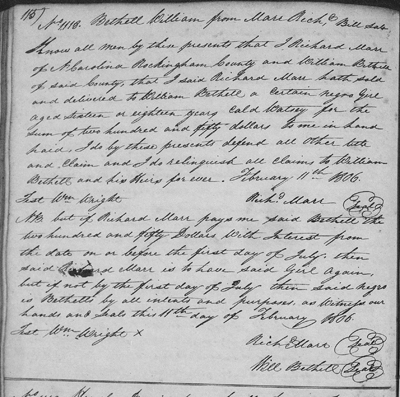 115)
No 1118. Bethell William from Marr Richd Bill Sale
Know all men by these presents that I Richard Marr
of N. Carolina Rockingham County and William Bethell
of said County, that I said Richard Marr hath sold
and delivered to William Bethell a Certain negro Girl
aged Sixteen or eighteen years Cald Watsey for the
Sum of two hundred and fifty dollars to me in hand
paid. I do by these presents defend all other
and Claim and I do relinquish all Claims to William
Bethell and his Heirs for ever. February 11th 1806.
Test Wm Wright Richd Marr (Seal)
NB but if Richard Marr pays me said Bethell the
two hundred and fifty Dollars With Interest from
the date on or before the first day of July, then
said Richard Marr is to have said Girl again,
but if not by the first day of July then said negro
is Bethells by all intents and purposes, as Witness our
hands and Seals this 11th day of February 1806.
Test Wm Wright X
Richd Marr (Seal)
Will Bethell (Seal)